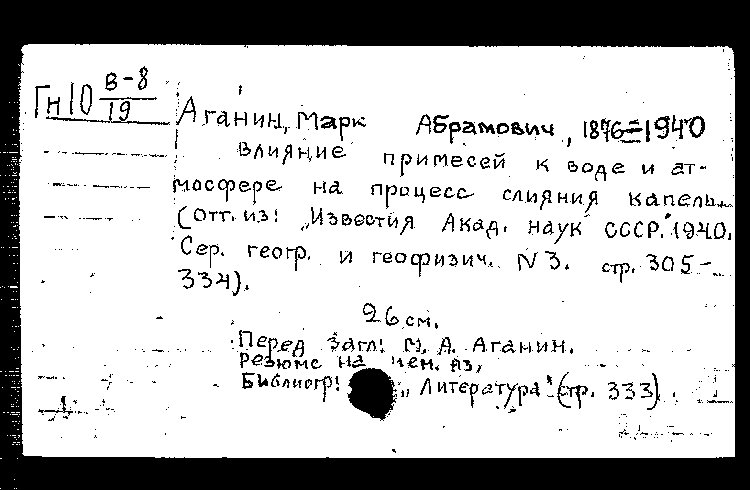 Гн10 В-8
19
Аганин, Марк Абрамович, 1876=1940
Влияние примесей к воде и ат-
мосфере на процесс слияния капель.
(Отт. из: „Известия Акад. наук СССР." 1940.
Сер. геогр. и геофизич. N 3. стр. 305-
334).
26 см.
Перед загл: М. А. Аганин.
Резюме на нем. яз.
Библиогр: „Литература" (стр. 333).